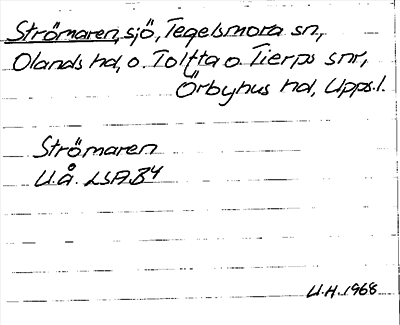 Strömaren, sjö, Tegelsmora sn,
Olands hd, o. Tolfta o. Tierps snr,
Örbyhus hd, Uppsl.
Strömaren
U.å. LSA B4
U.H. 1968